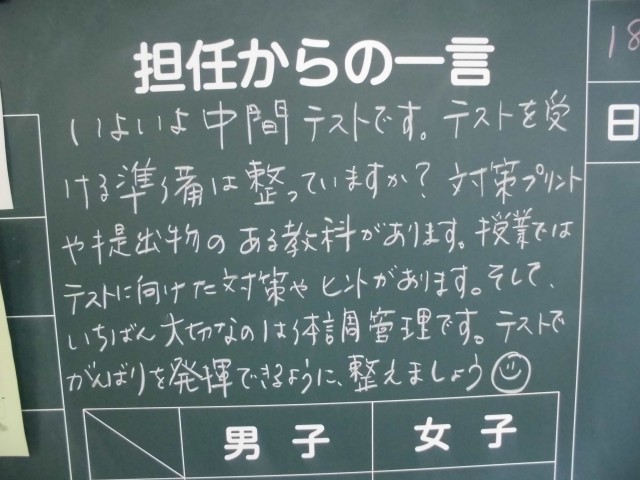 担任からの一言
いよいよ中間テストです。テストを受
ける準備は整っていますか？対策プリント
や提出物のある教科があります。授業では
テストに向けた対策やヒントがあります。そして、
いちばん大切なのは体調管理です。テストで
がんばりを発揮できるように、整えましょう
男子
女子
18
日